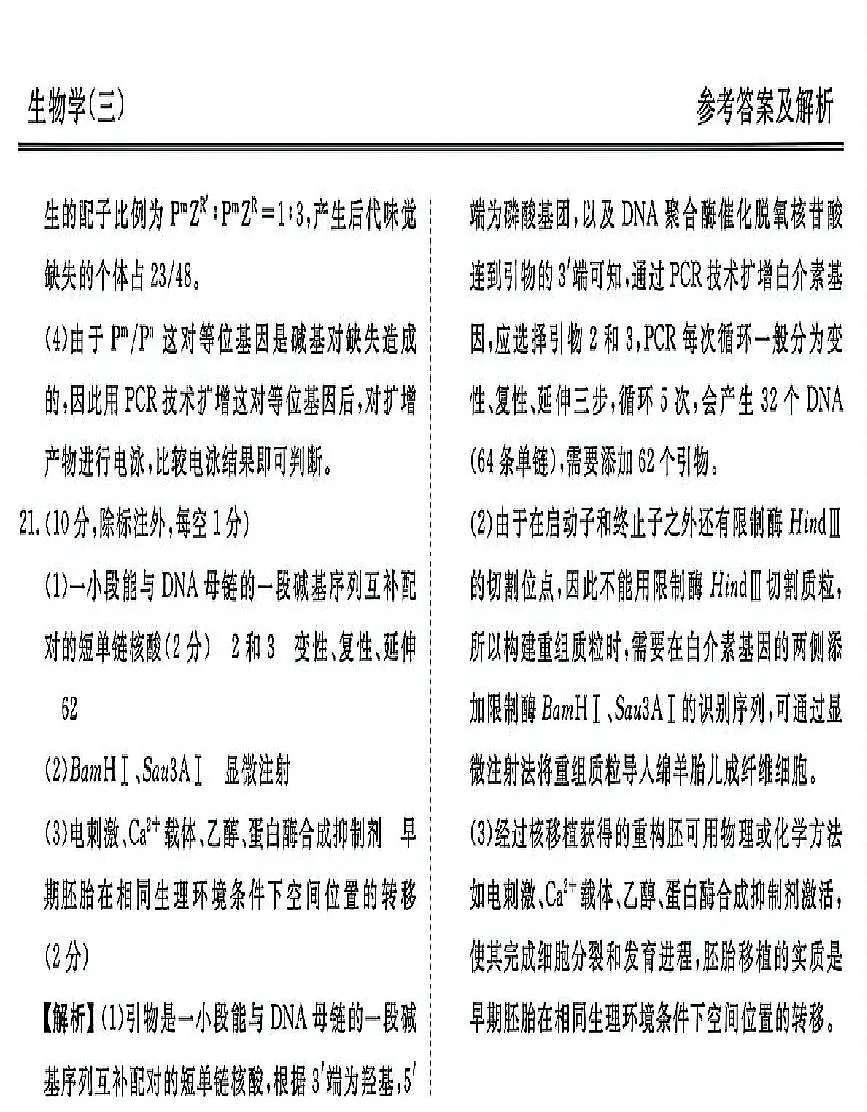 生物学(三)
参考答案及解析
生的配子比例为 PᵐZᴿ′:PᵐZᴿ=1:3,产生后代味觉
缺失的个体占 23/48。
(4)由于 Pᵐ/Pⁿ 这对等位基因是碱基对缺失造成
的,因此用 PCR 技术扩增这对等位基因后,对扩增
产物进行电泳,比较电泳结果即可判断。
21.(10 分,除标注外,每空 1 分)
(1)一小段能与 DNA 母链的一段碱基序列互补配
对的短单链核酸(2 分) 2 和 3 变性、复性、延伸
62
(2)BamHⅠ、Sau3AⅠ 显微注射
(3)电刺激、Ca²⁺ 载体、乙醇、蛋白酶合成抑制剂 早
期胚胎在相同生理环境条件下空间位置的转移
(2 分)
【解析】(1)引物是一小段能与 DNA 母链的一段碱
基序列互补配对的短单链核酸,根据 3′端为羟基,5′
端为磷酸基团,以及 DNA 聚合酶催化脱氧核苷酸
连到引物的 3′端可知,通过 PCR 技术扩增白介素基
因,应选择引物 2 和 3,PCR 每次循环一般分为变
性、复性、延伸三步,循环 5 次,会产生 32 个 DNA
(64 条单链),需要添加 62 个引物。
(2)由于在启动子和终止子之外还有限制酶 HindⅢ
的切割位点,因此不能用限制酶 HindⅢ切割质粒,
所以构建重组质粒时,需要在白介素基因的两侧添
加限制酶 BamHⅠ、Sau3AⅠ的识别序列,可通过显
微注射法将重组质粒导入绵羊胎儿成纤维细胞。
(3)经过核移植获得的重构胚可用物理或化学方法
如电刺激、Ca²⁺ 载体、乙醇、蛋白酶合成抑制剂激活,
使其完成细胞分裂和发育进程,胚胎移植的实质是
早期胚胎在相同生理环境条件下空间位置的转移。